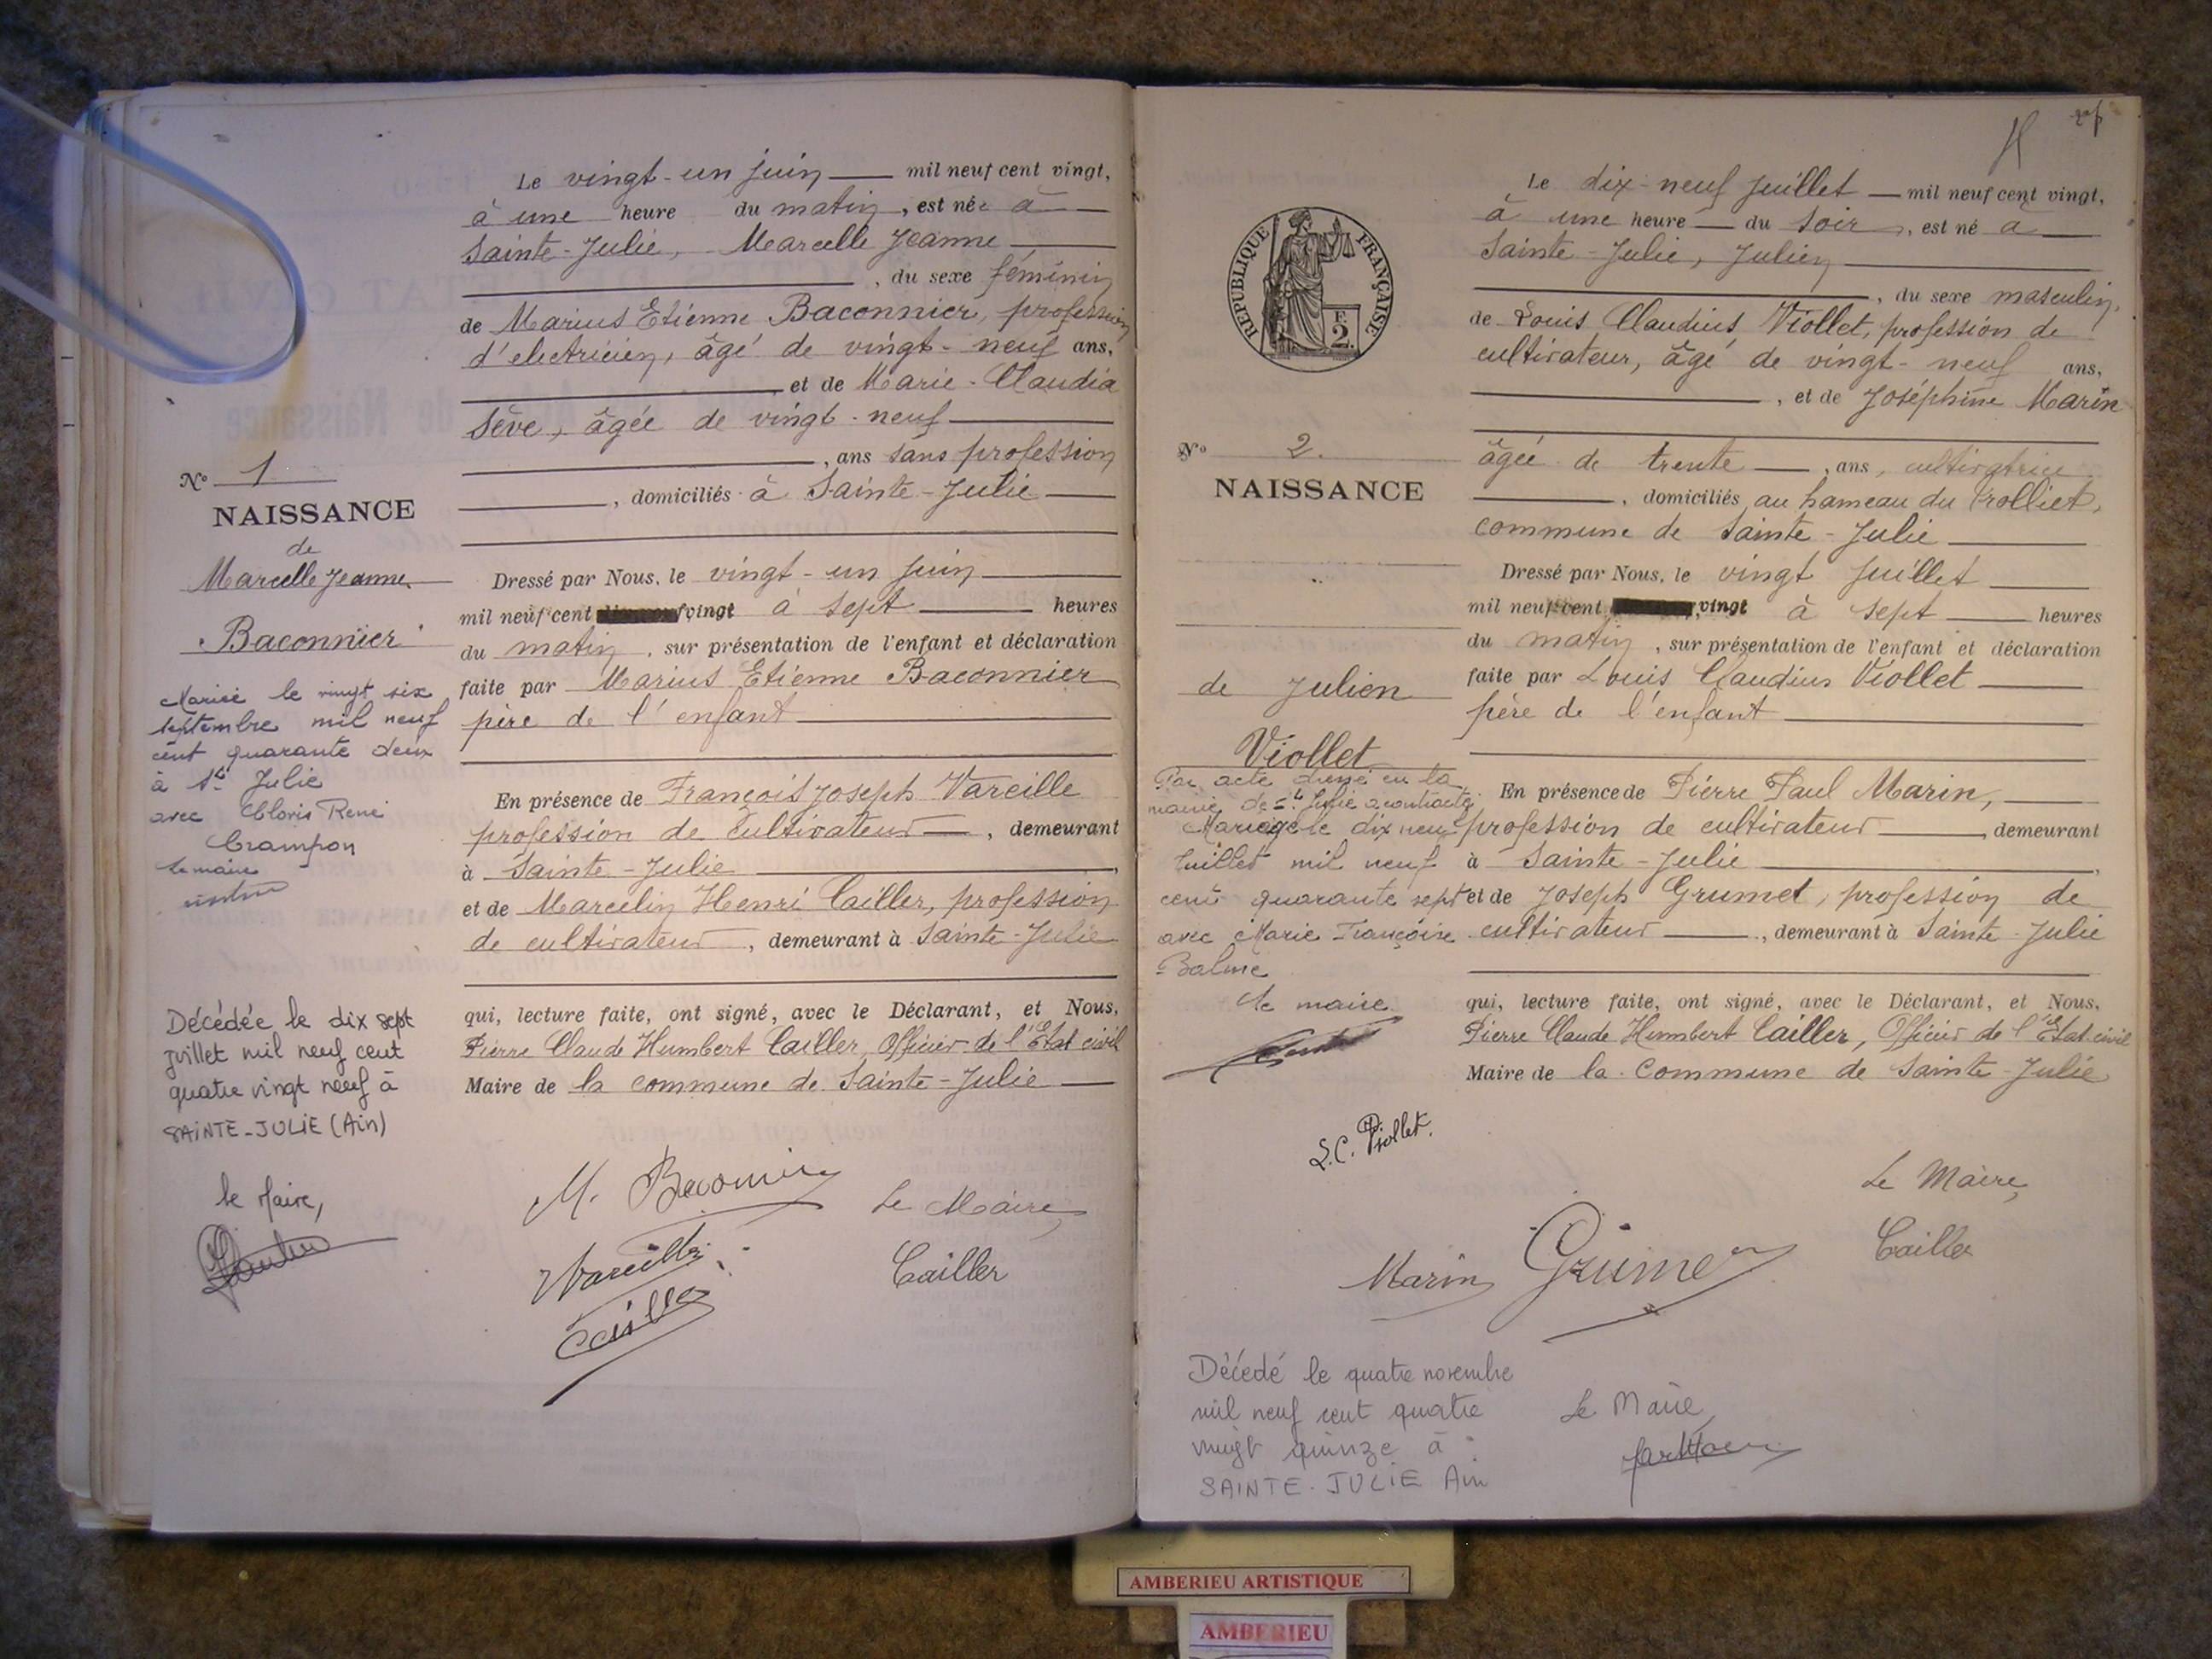 Le vingt-un juin mil neuf cent vingt,
à une heure du matin, est née à
Sainte-Julie, Marcelle Jeanne
, du sexe féminin
de Marius Etienne Baconnier, profession
d'electricien, âgé de vingt-neuf ans,
et de Marie-Claudia
Sève, âgée de vingt-neuf
, ans sans profession
, domiciliés à Sainte-Julie
No 1
NAISSANCE
de
Marcelle Jeanne
Baconnier
Mariée le vingt six
septembre mil neuf
cent quarante deux
à Ste Julie
avec Clovis René
Crampon
Le maire
Décédée le dix sept
juillet mil neuf cent
quatre vingt neuf à
SAINTE-JULIE (Ain)
le Maire,
Dressé par Nous, le vingt-un juin
mil neuf cent vingt à sept heures
du matin, sur présentation de l'enfant et déclaration
faite par Marius Etienne Baconnier
père de l'enfant
En présence de François Joseph Vareille
profession de cultivateur, demeurant
à Sainte-Julie,
et de Marcelin Henri Cailler, profession
de cultivateur, demeurant à Sainte-Julie
qui, lecture faite, ont signé, avec le Déclarant, et Nous,
Pierre Claude Humbert Cailler, Officier de l'État civil
Maire de la commune de Sainte-Julie
M. Baconnier
Le Maire,
Vareille
Cailler
Cailler
Le dix-neuf Juillet mil neuf cent vingt,
à une heure du soir, est né à
Sainte-Julie, Julien
, du sexe masculin,
de Louis Claudius Viollet, profession de
cultivateur, âgé de vingt-neuf ans,
, et de Joséphine Marin
âgée de trente, ans, cultivatrice
, domiciliés au hameau du Trolliet,
commune de Sainte-Julie
REPUBLIQUE FRANÇAISE
F.
2.
No 2.
NAISSANCE
de Julien
Viollet
Par acte dressé en la
mairie de Ste Julie a contracté
Mariage le dix neuf
Juillet mil neuf
cent quarante sept
avec Marie Françoise
Balme
le maire
Dressé par Nous, le vingt Juillet
mil neuf cent vingt à sept heures
du matin, sur présentation de l'enfant et déclaration
faite par Louis Claudius Viollet
père de l'enfant
En présence de Pierre Paul Marin,
profession de cultivateur, demeurant
à Sainte-Julie,
et de Joseph Grumet, profession de
cultivateur, demeurant à Sainte-Julie
qui, lecture faite, ont signé, avec le Déclarant, et Nous,
Pierre Claude Humbert Cailler, Officier de l'État civil
Maire de la Commune de Sainte-Julie
L.C. Viollet.
Le Maire,
Marin Grumet Cailler
Décédé le quatre novembre
mil neuf cent quatre
vingt quinze à
SAINTE-JULIE Ain
Le Maire,
AMBERIEU ARTISTIQUE
AMBERIEU